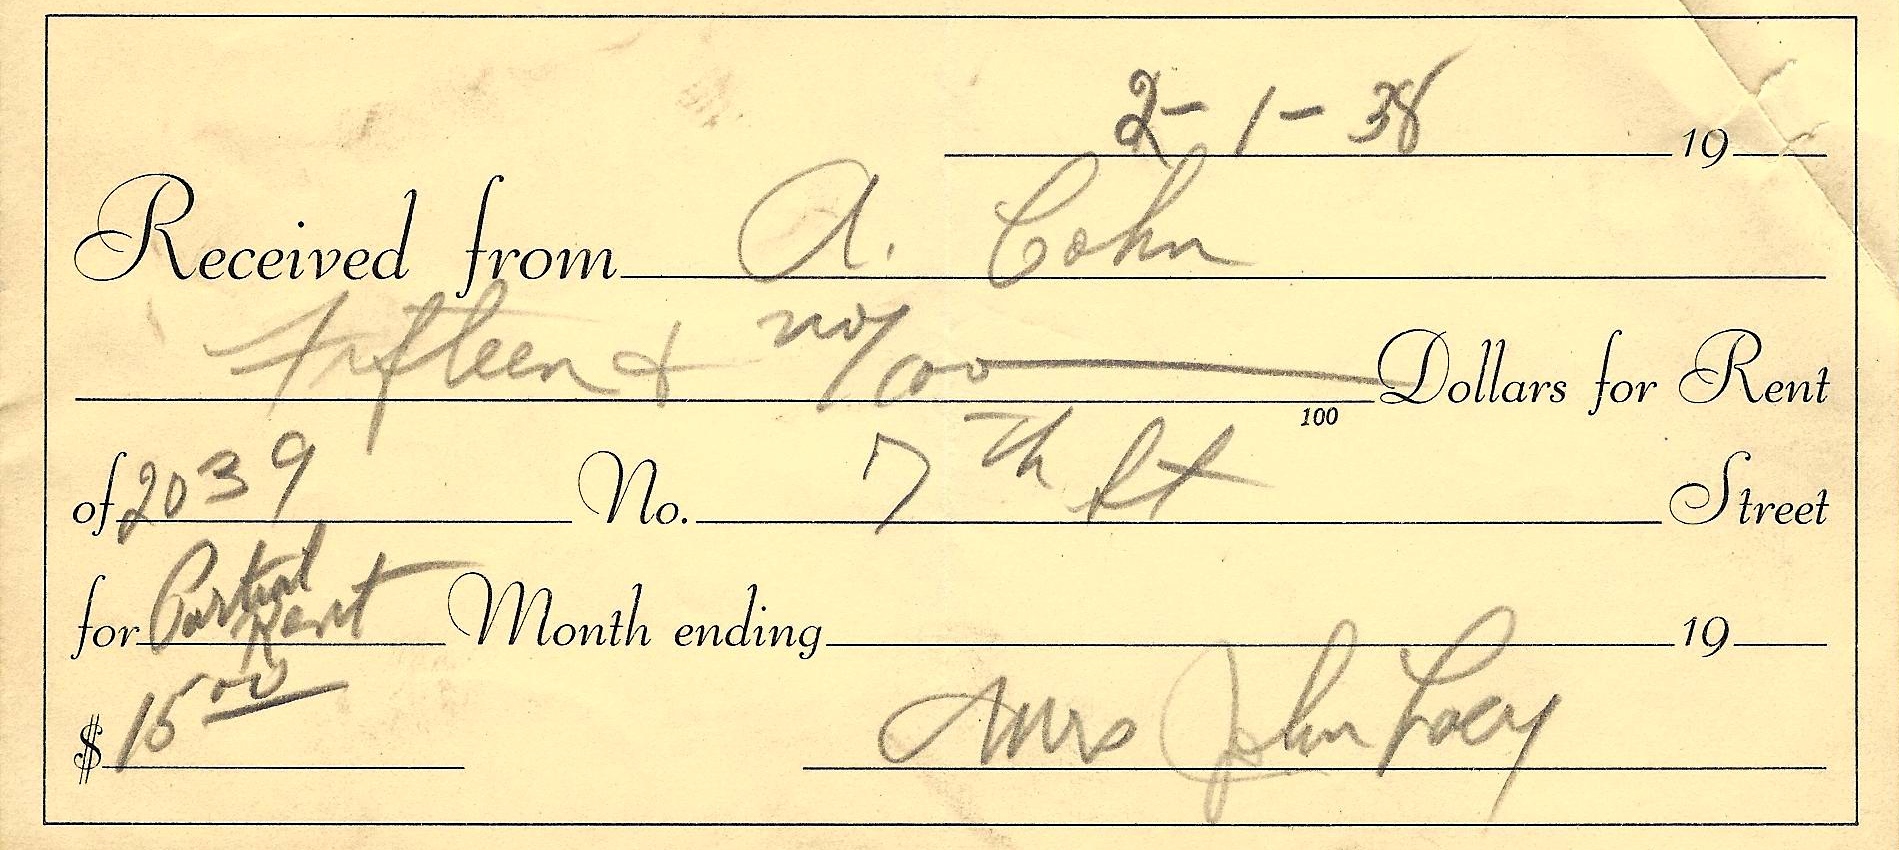 2-1-38 19
Received from A. Cohn
Fifteen & no/100 Dollars for Rent
100
of 2039 No. 7th St Street
for Partial Rent Month ending 19
$ 15.00 Mrs John